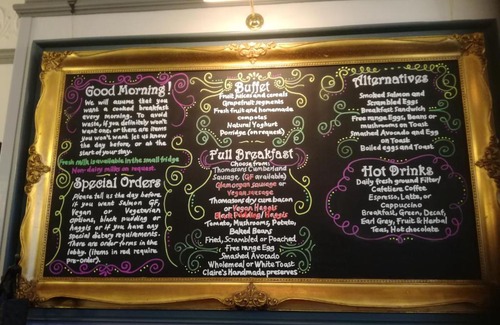 Good Morning!
We will assume that you
want a cooked breakfast
every morning. To avoid
waste, if you definitely won't
want one, or there are items
you won't want let us know
the day before, or at the
start of your stay.
Fresh milk is available in the small fridge
Non-dairy milks on request.
Special Orders
Please tell us the day before,
if you want Salmon GF,
Vegan or Vegetarian
options, black pudding or
haggis or if you have any
special dietary requirements.
There are order forms in the
lobby. (items in red require
pre-order).
Buffet
Fruit juices and cereals
Grapefruit segments
Fresh fruit and homemade
compotes
Natural Yoghurt
Porridge (on request)
Full Breakfast
Choose from:
Thomasons Cumberland
Sausage, (GF available)
Glamorgan sausage or
Vegan sausage
Thomasons dry cure bacon
or Vegan Haggis
Black Pudding/ Haggis
Tomato, Mushrooms, Potato,
Baked Beans
Fried, Scrambled or Poached
Free range Egg
Smashed Avocado
Wholemeal or White Toast
Claire's Handmade preserves
Alternatives
Smoked Salmon and
Scrambled Eggs
Breakfast Sandwich
Free range Eggs, Beans or
mushrooms on Toast
Smashed Avocado and Egg
on Toast
Boiled eggs and Toast
Hot Drinks
Daily fresh ground Filter/
Cafetiere Coffee
Espresso, Latte, or
Cappuccino.
Breakfast, Green, Decaf,
Earl Grey, Fruit & Herbal
Teas, Hot chocolate